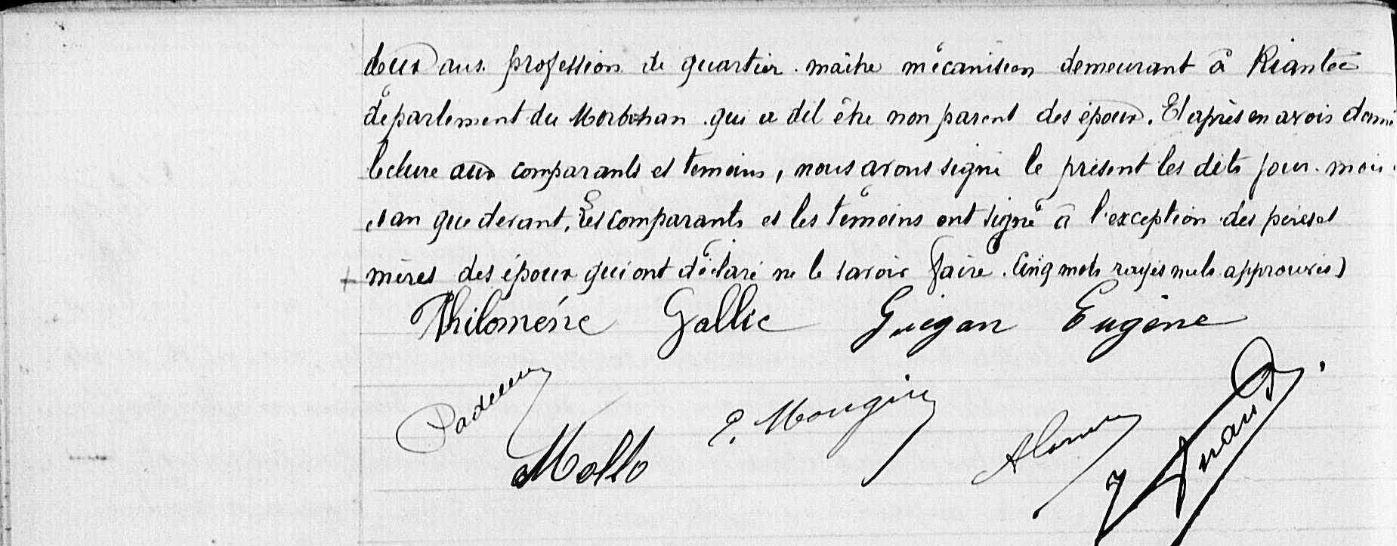 deux ans. profession de quartier. maître mécanicien demeurant à Riantec
département du Morbihan. qui a dit être non parent des époux. Et après en avoir donné
lecture aux comparants et témoins, nous avons signé le présent les dits jour. mois.
et an que devant. Les comparants et les témoins ont signé à l'exception des pères et
mères des époux qui ont déclaré ne le savoir faire. (Cinq mots rayés nuls approuvés)
Philomène Gallic Guégan Eugène
Mollo P. Mougin